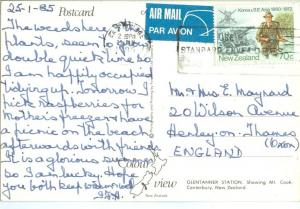 25-1-85
Postcard
The weeds here, &
plants, seem to grow
double quick time so
I am happily occupied
tidying up. Tomorrow I
pick raspberries for
Mother's freezer & have
a picnic on the beach
afterwards with friends
It is a glorious summer
so I am lucky. Hope
you both keep warm
AIR MAIL
PAR AVION
Korea & S.E. Asia 1950-1972
New Zealand 70c
STANDARD
Mr & Mrs E. Maynard
20 Wilson Avenue
Henley-on-Thames
(Oxon)
ENGLAND
Colour
view
GLENTANNER STATION, Showing Mt. Cook.
Canterbury, New Zealand.